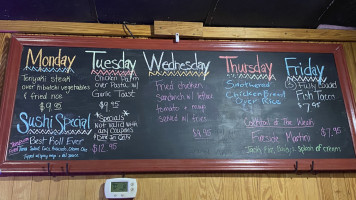 Monday
Teriyaki steak
over hibachi vegetables
& fried rice
$9.95
Tuesday
Chicken Parm
over Pasta w/
Garlic Toast
$9.95
Wednesday
Fried chicken
Sandwich w/ lettuce
tomato & mayo
served w/ fries
$9.95
Thursday
Smothered
Chicken Breast
Over Rice
Friday
Fully Loaded
Fish Tacos
$7.95
Sushi Special
Best Roll Ever
$12.95
* Specials
Not valid with
any coupons
Cocktail of the Week
Fireside Martini
$7
Jack Fire,
splash of cream